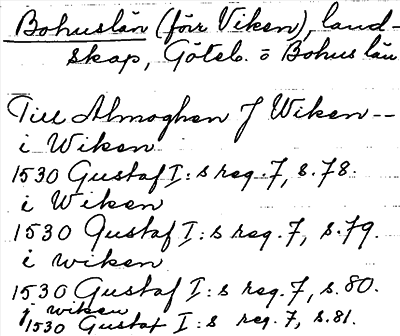 Bohuslän (förr Viken), land-
skap, Göteb. o Bohus län
Till Almoghen J Wiken --
i Wiken
1530 Gustaf I:s reg. 7, s. 78.
i Wiken
1530 Gustaf I:s reg. 7, s. 79.
i wiken
1530 Gustaf I:s reg. 7, s. 80.
j wiken
1530 Gustaf I:s reg. 7, s. 81.